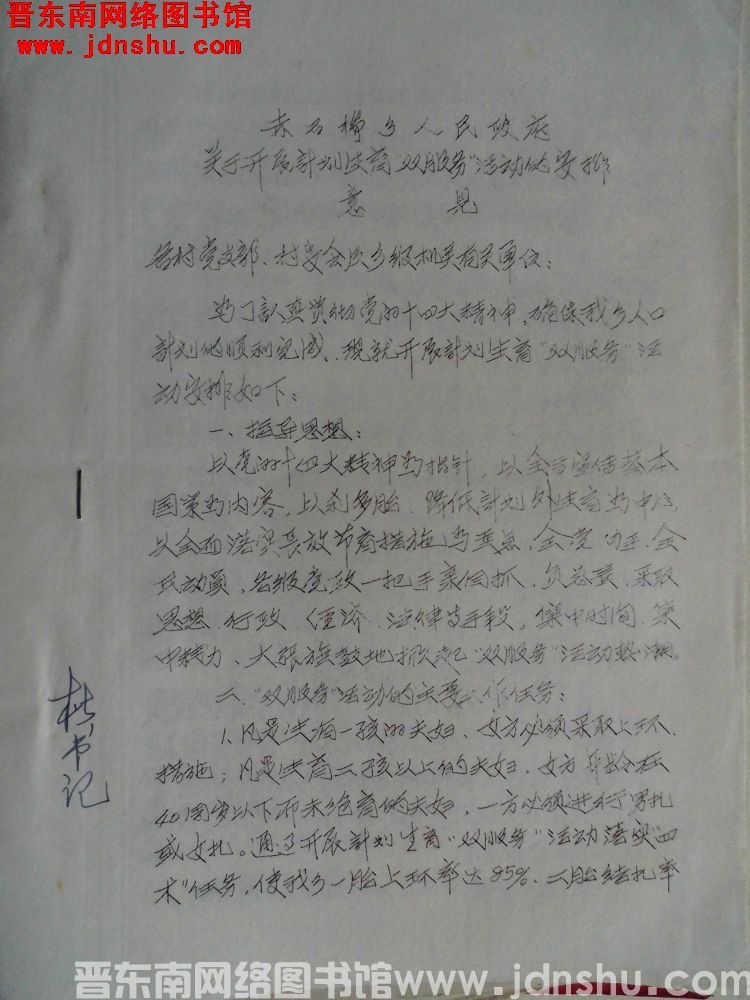 晋东南网络图书馆
www.jdnshu.com
赤石桥乡人民政府
关于开展計划生育“双服务”活动的安排
意见
各村党支部、村委会及乡级机关有关单位：
为了认真贯彻党的十四大精神，确保我乡人口
計划的顺利完成，现就开展計划生育“双服务”活
动安排如下：
一、指导思想：
以党的十四大精神为指针，以全方宣传基本
国策为内容，以刹多胎、降低計划外生育为中心，
以全面落实长效节育措施为重点，全党动手、全
民动员，各级党政一把手亲自抓，负总责，采取
思想、行政、经济、法律等手段，集中时间、集
中精力、大张旗鼓地掀起“双服务”活动热潮。
二、“双服务”活动的主要工作任务：
1、凡是生育一孩的夫妇，女方必须采取上环
措施；凡是生育二孩以上的夫妇，女方年龄在
40周岁以下而未绝育的夫妇，一方必须进行男扎
或女扎。通过开展計划生育“双服务”活动落实“四
术”任务，使我乡一胎上环率达85%、二胎结扎率
杜书记
晋东南网络图书馆www.jdnshu.com